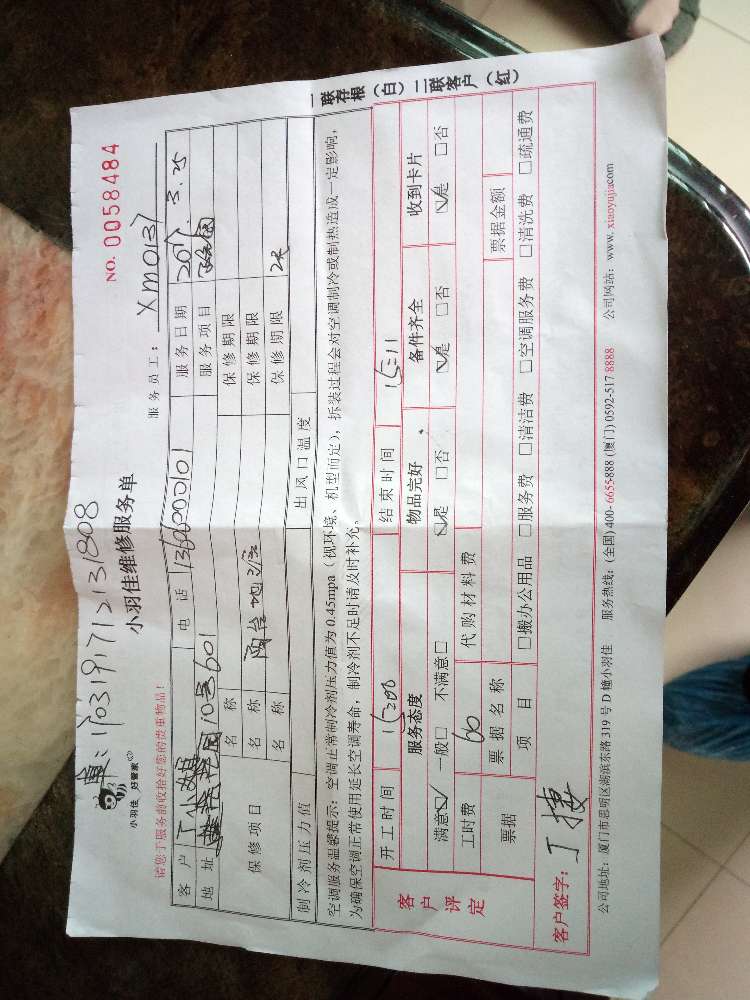 一联存根（白）二联客户（红）
NO. 0058484
小羽佳 好管家
小羽佳维修服务单
请您于服务前收拾好您的贵重物品！
服务员工：XM0137
客户 丁小姐 电话 服务日期 2017.3.25
地址 10号601 服务项目
保修项目 名称 保修期限
名称 两台地 保修期限
名称 保修期限 2天
制冷剂压力值 出风口温度
空调服务温馨提示：空调正常制冷剂压力值为 0.45mpa（视环境、机型而定），拆装过程会对空调制冷或制热造成一定影响，
为确保空调正常使用延长空调寿命，制冷剂不足时请及时补充。
客户评定
开工时间 15:00 结束时间 15:11
服务态度 物品完好 备件齐全 收到卡片
满意☑ 一般□ 不满意□ ☑是 □否 ☑是 □否 ☑是 □否
工时费 60 代购材料费
票据 票据名称 票据金额
项目 □搬办公用品 □服务费 □清洁费 □空调服务费 □清洗费 □疏通费
客户签字：丁捷
公司地址：厦门市思明区湖滨东路 319 号 D 幢小羽佳 服务热线：(全国) 400-6655-888 (厦门) 0592-517 8888 公司网站：www.xiaoyujia.com